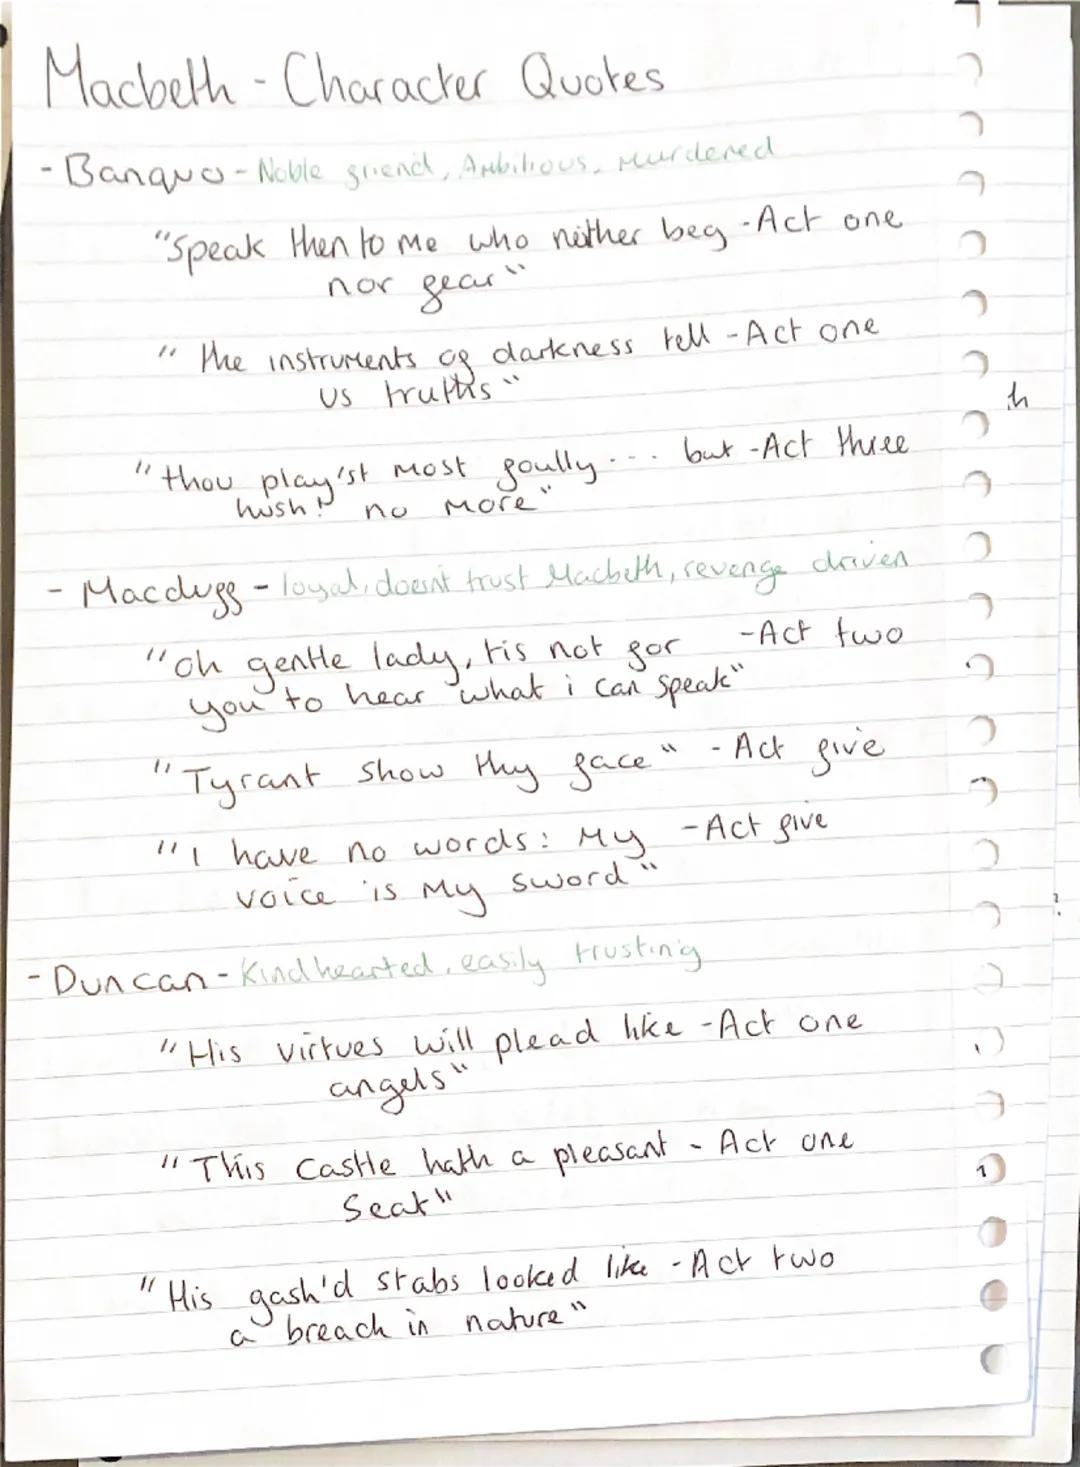 Macbeth - Character Quotes
- Banquo - Noble friend, Ambitious, Murdered
"Speak then to me who neither beg - Act one
nor fear"
"the instruments of darkness tell - Act one
us truths"
"thou play'st most foully... but - Act three
hush! no more"
- Macduff - loyal, doesnt trust Macbeth, revenge driven
"Oh gentle lady, tis not for - Act two
you to hear what i can speak"
"Tyrant show thy face" - Act five
"I have no words: My - Act five
voice is my sword"
- Duncan - Kind hearted, easily trusting
"His virtues will plead like - Act one
angels"
"This Castle hath a pleasant - Act one
Seat"
"His gash'd stabs looked like - Act two
a breach in nature"